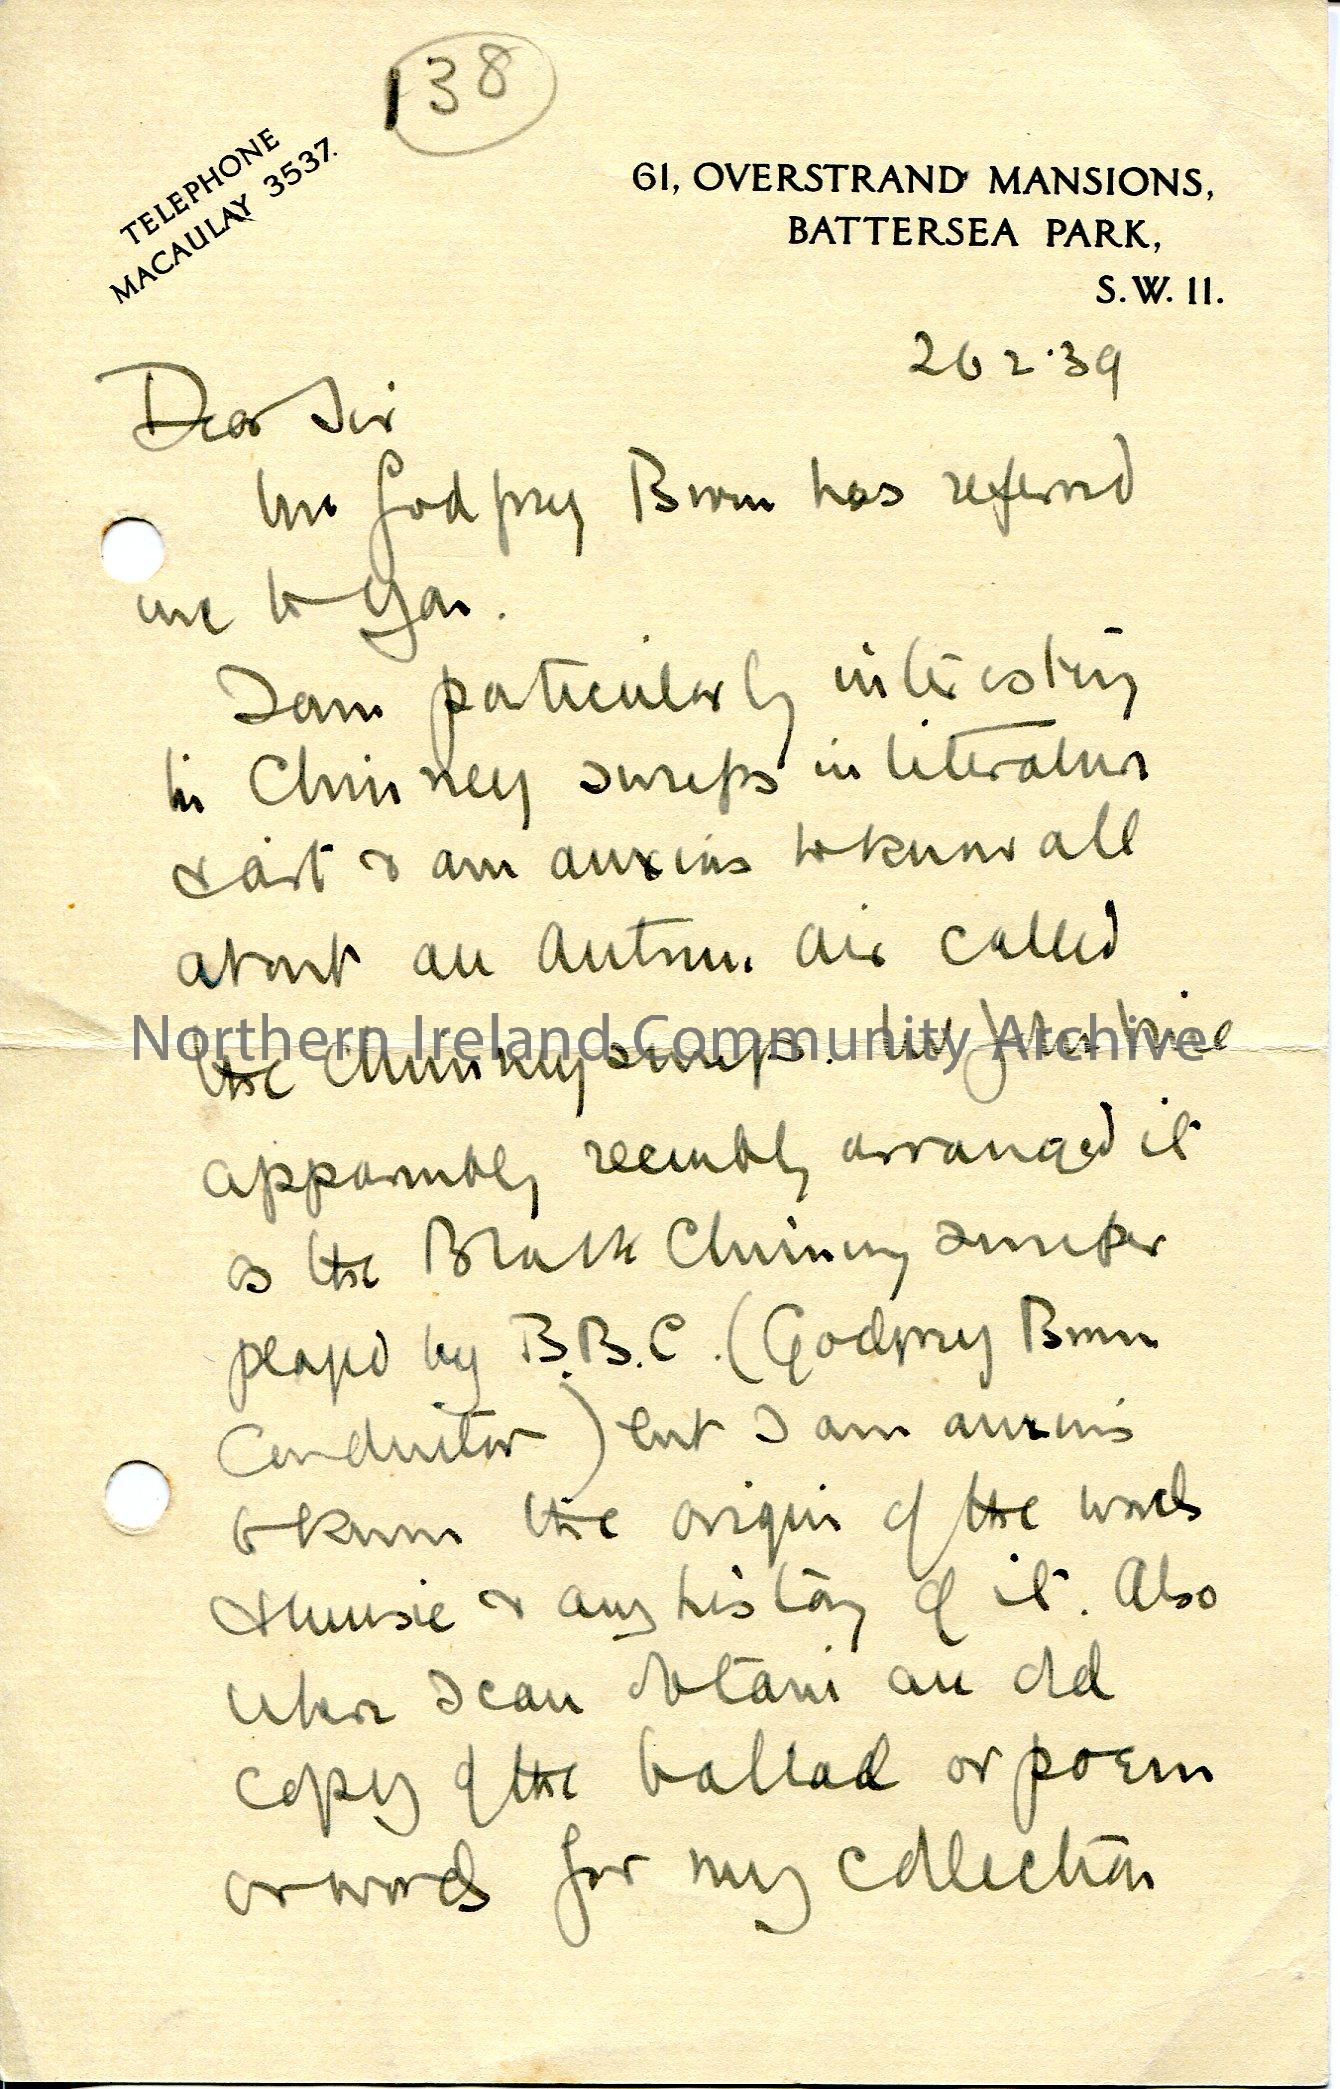 138
TELEPHONE
MACAULAY 3537.
61, OVERSTRAND MANSIONS,
BATTERSEA PARK,
S.W. 11.
26 2.39
Dear Sir
Mr Godfrey Brown has referred
me to you.
I am particularly interesting
in Chimney sweeps in literature
& art & am anxious to know all
about an Antrim Air called
Northern Ireland Community Archive
the Chimney sweeps.
apparently recently arranged it
as the Black Chimney sweeper
played by B.B.C. (Godfrey Brown
Conductor) but I am anxious
to know the origin of the words
& music & any history of it. Also
where I can obtain an old
copy of the ballad or poem
or words for my collection